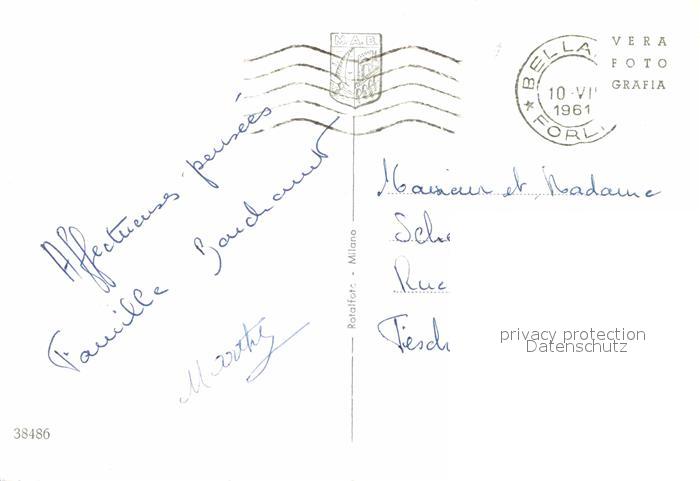 M.A.B.
BELLA
10-VI
1961
FORLI
VERA
FOTO
GRAFIA
Affectueuses pensées
Famille
Marthe
Rotalfoto - Milano
Monsieur et Madame
Sch
Rue
Tiesch
privacy protection
Datenschutz
38486